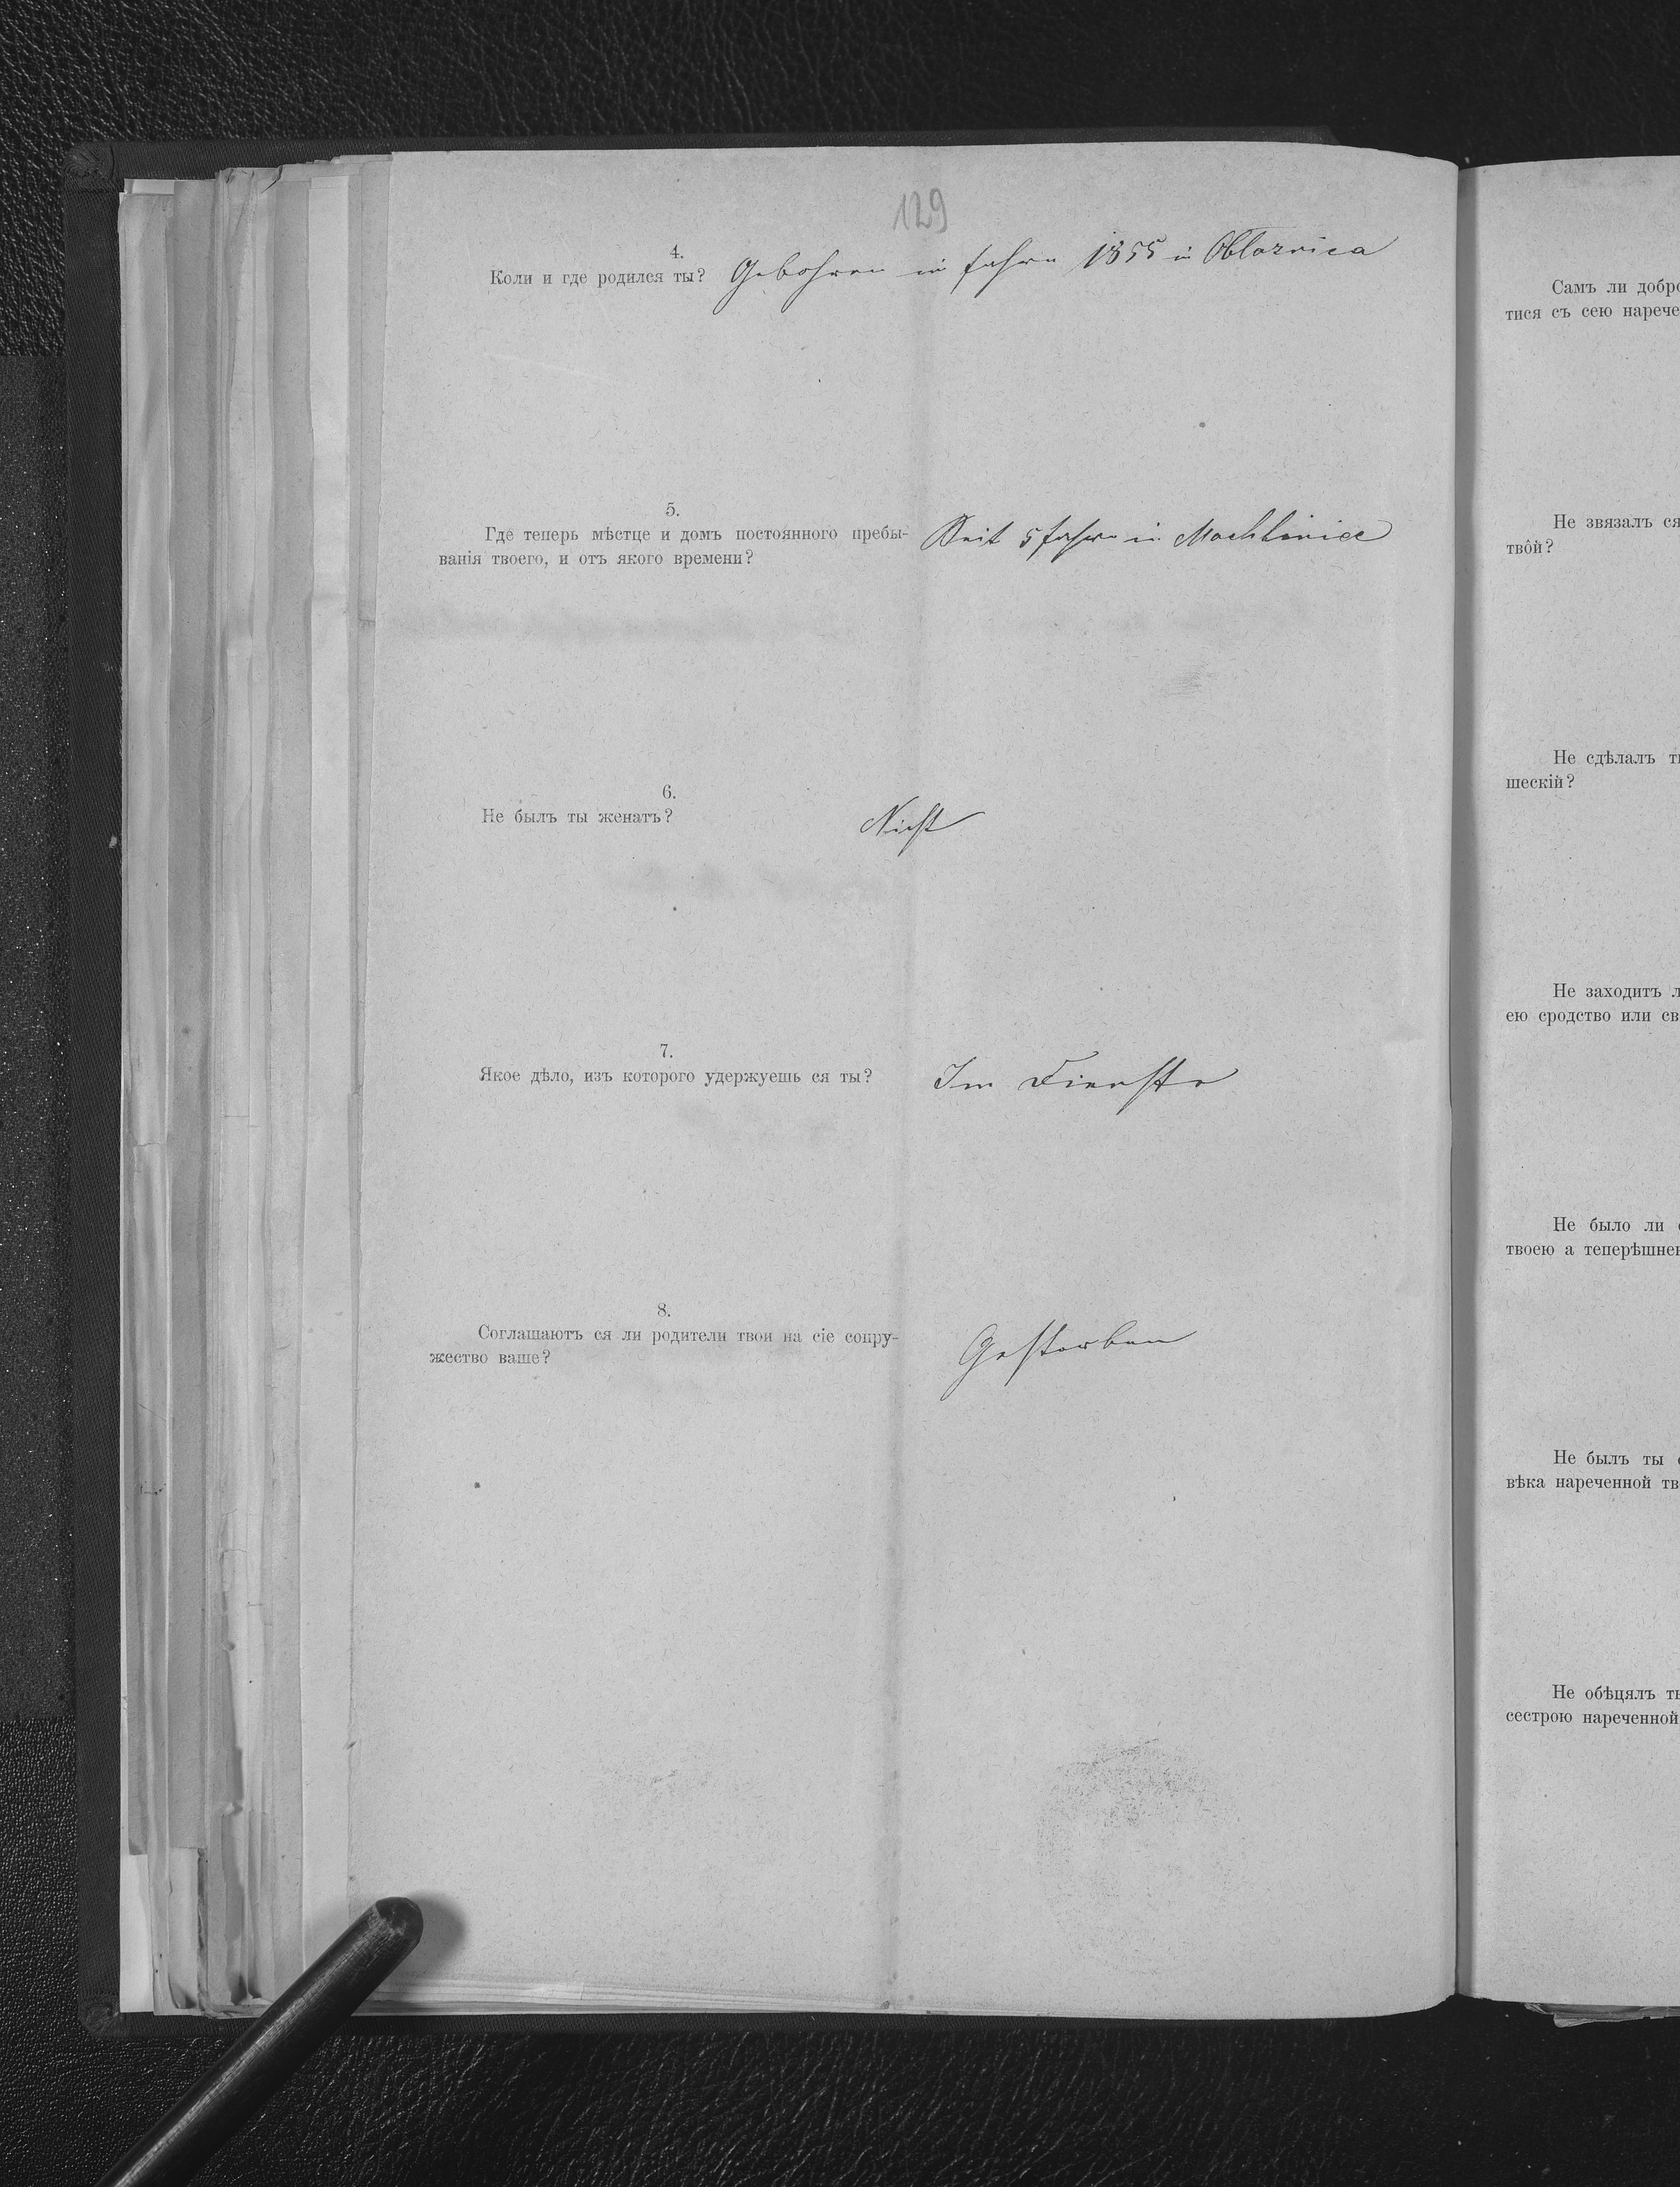 129
4.
Коли и где родился ты? Gebohren in Jahre 1855 in Oblaznica
5.
Где теперь мѣстце и домъ постоянного пребы- Seit 5 Jahre in Machliniec
ванія твоего, и отъ якого времени?
6.
Не былъ ты женатъ? Nicht
7.
Якое дѣло, изъ которого удержуешь ся ты? Im Dienste
8.
Соглашаютъ ся ли родители твои на сіе сопру- Gestorben
жество ваше?
Самъ ли добро
тися съ сею нарече
Не звязалъ ся
твôй?
Не сдѣлалъ т
шескій?
Не заходитъ л
ею сродство или св
Не было ли
твоею а теперѣшне
Не былъ ты
вѣка нареченной тв
Не обѣцялъ т
сестрою нареченной